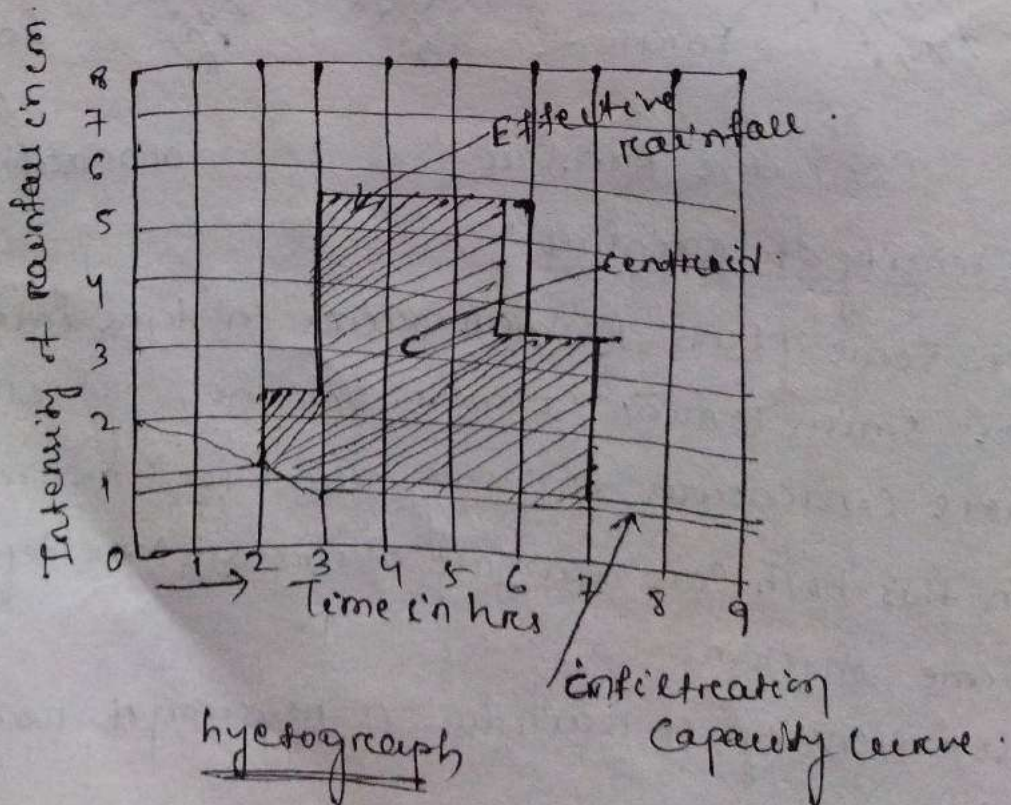 Intensity of rainfall in cm
8
7
6
5
4
3
2
1
0
Effective
rainfall.
centroid.
C
1 2 3 4 5 6 7 8 9
Time in hrs
infiltreation
capacity curve.
hyetograph